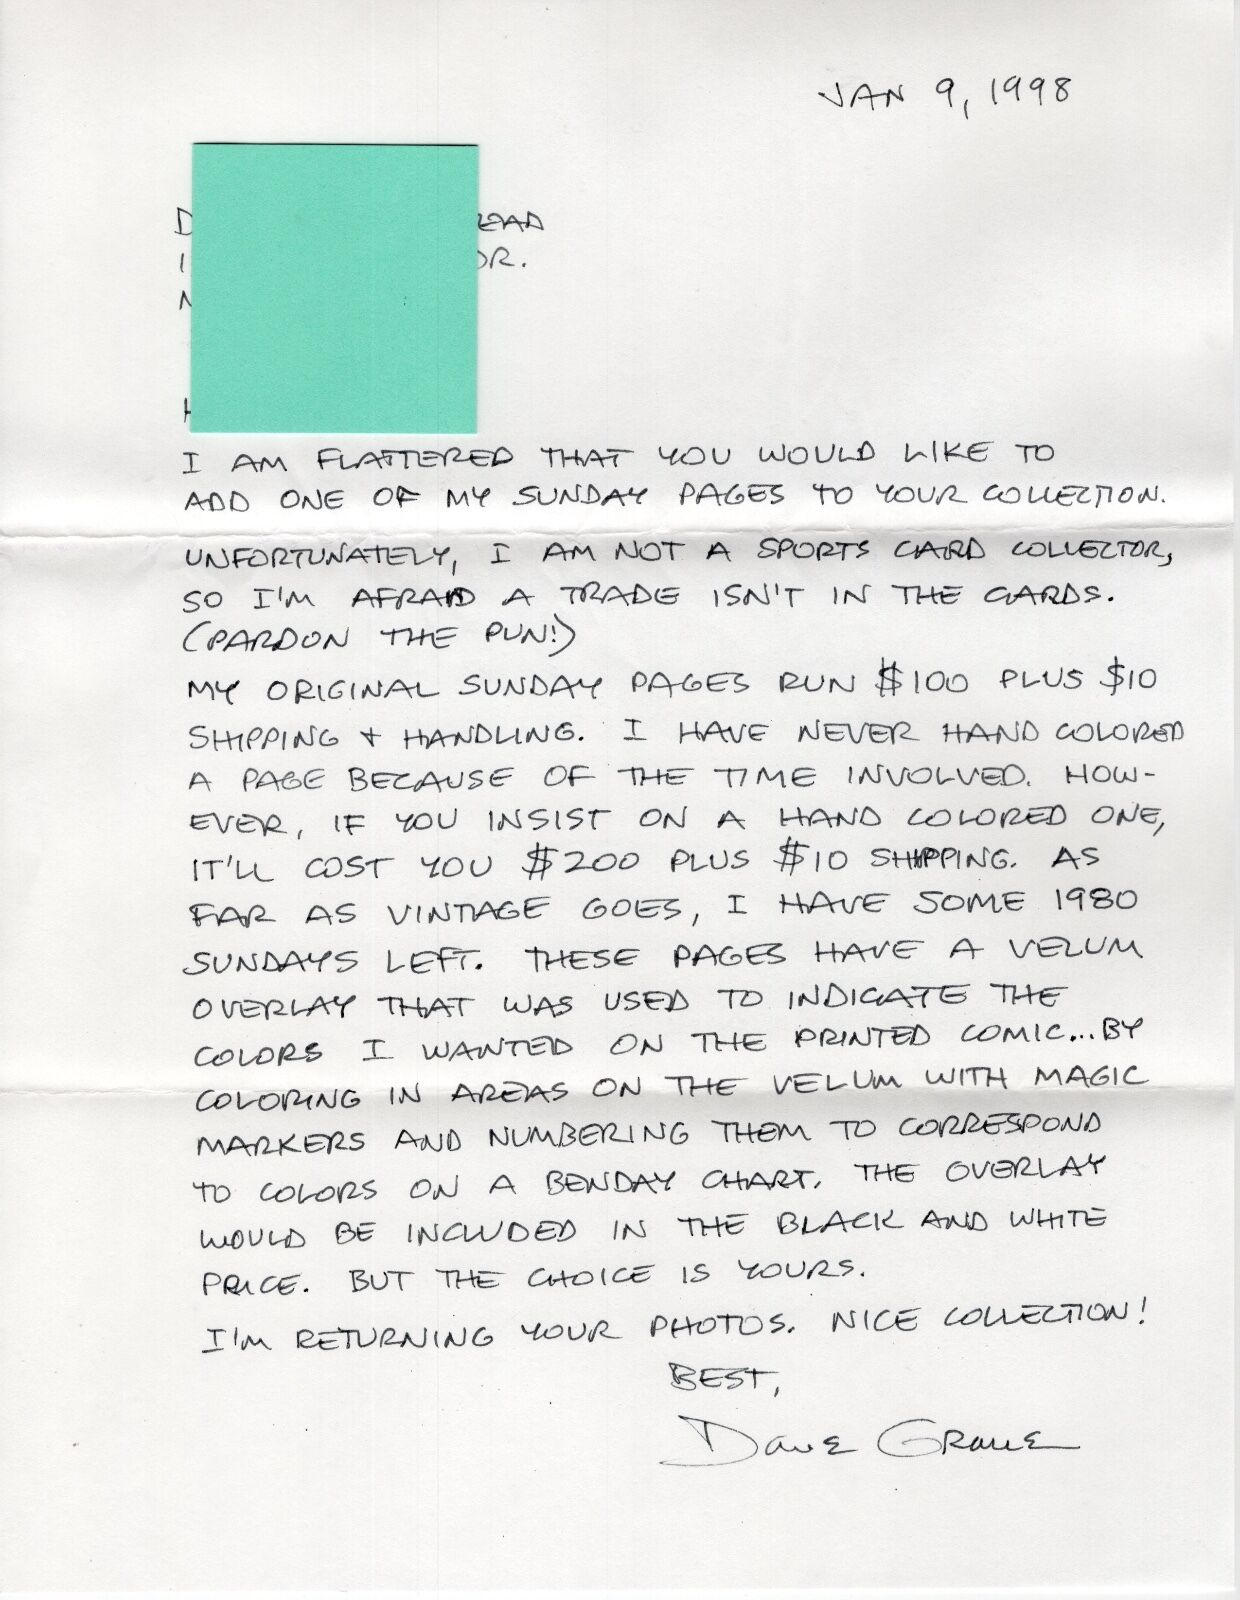 JAN 9, 1998
DR.
I AM FLATTERED THAT YOU WOULD LIKE TO
ADD ONE OF MY SUNDAY PAGES TO YOUR COLLECTION.
UNFORTUNATELY, I AM NOT A SPORTS CARD COLLECTOR,
SO I'M AFRAID A TRADE ISN'T IN THE CARDS.
(PARDON THE PUN!)
MY ORIGINAL SUNDAY PAGES RUN $100 PLUS $10
SHIPPING + HANDLING. I HAVE NEVER HAND COLORED
A PAGE BECAUSE OF THE TIME INVOLVED. HOW-
EVER, IF YOU INSIST ON A HAND COLORED ONE,
IT'LL COST YOU $200 PLUS $10 SHIPPING. AS
FAR AS VINTAGE GOES, I HAVE SOME 1980
SUNDAYS LEFT. THESE PAGES HAVE A VELUM
OVERLAY THAT WAS USED TO INDICATE THE
COLORS I WANTED ON THE PRINTED COMIC...BY
COLORING IN AREAS ON THE VELUM WITH MAGIC
MARKERS AND NUMBERING THEM TO CORRESPOND
TO COLORS ON A BENDAY CHART. THE OVERLAY
WOULD BE INCLUDED IN THE BLACK AND WHITE
PRICE. BUT THE CHOICE IS YOURS.
I'M RETURNING YOUR PHOTOS. NICE COLLECTION!
BEST,
Dave Graue